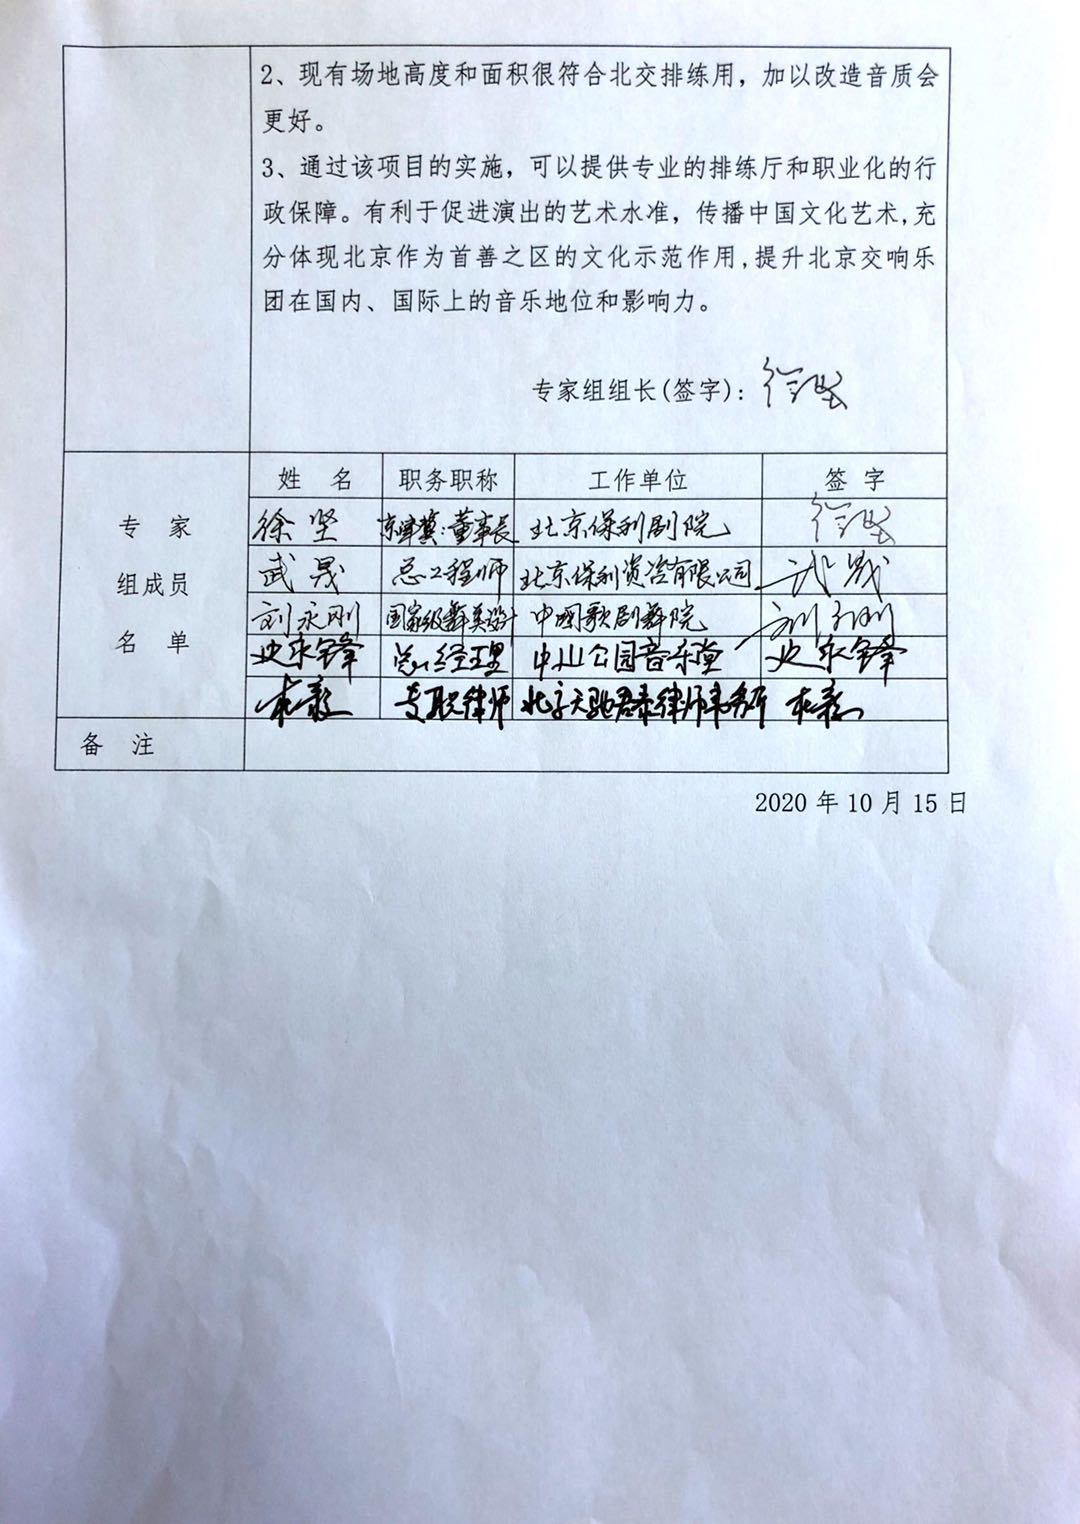 2、现有场地高度和面积很符合北交排练用，加以改造音质会
更好。
3、通过该项目的实施，可以提供专业的排练厅和职业化的行
政保障。有利于促进演出的艺术水准，传播中国文化艺术,充
分体现北京作为首善之区的文化示范作用,提升北京交响乐
团在国内、国际上的音乐地位和影响力。
专家组组长(签字)：徐坚
姓 名 职务职称 工作单位 签 字
专 家
组成员
名 单
徐坚 京津冀·董事长 北京保利剧院 徐坚
武晟 总工程师 北京保利资咨有限公司 武晟
刘永刚 国家级舞美设计 中国歌剧舞院 刘永刚
史永锋 总经理 中山公园音乐堂 史永锋
专职律师 北京天驰君泰律师事务所
备 注
2020 年 10 月 15 日